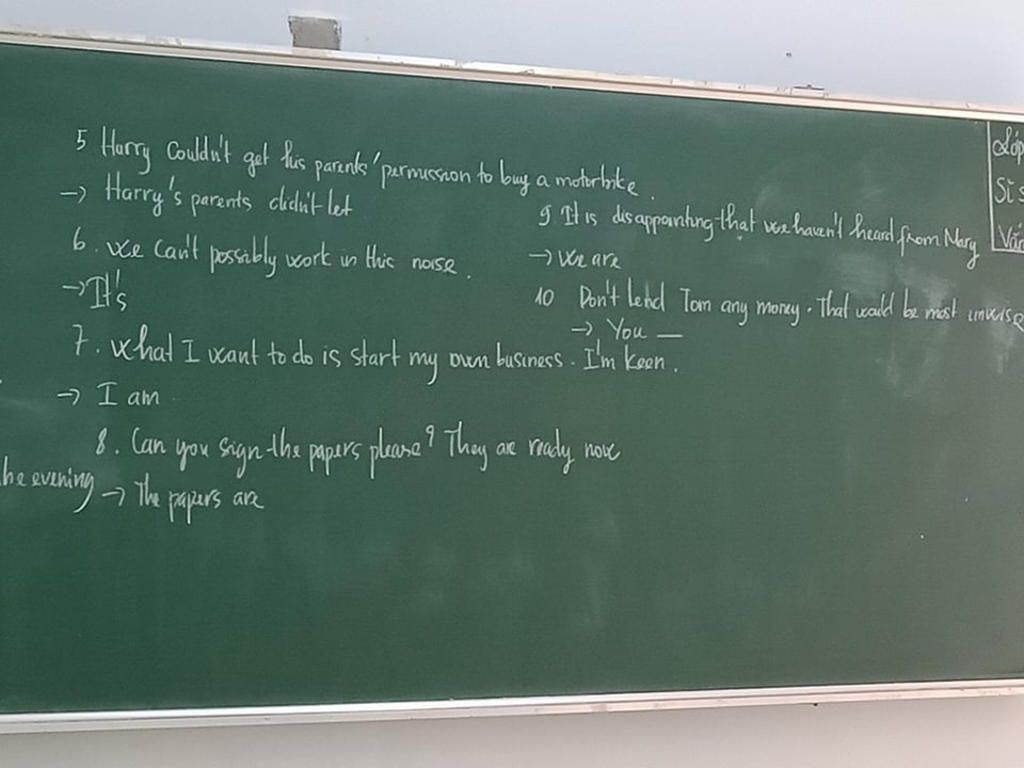 5 Harry Couldn't get his parents' permission to buy a motorbike.
→ Harry's parents didn't let
6. we can't possibly work in this noise.
→ It's
7. what I want to do is start my own business. I'm keen.
→ I am
8. Can you sign the papers please? They are ready now
he evening
→ The papers are
9 It is disappointing that we haven't heard from Mary
→ We are
10 Don't lend Tom any money. That would be most unwise
→ You —
Lớp
Sĩ s
Vắn